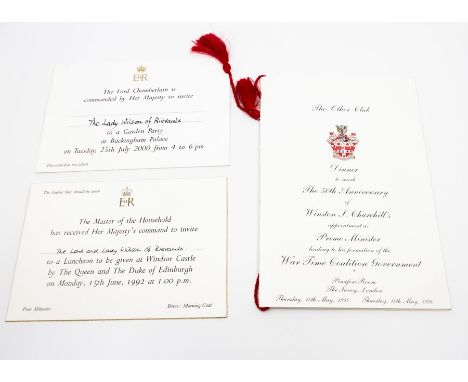 E II R
The Lord Chamberlain is
commanded by Her Majesty to invite
The Lady Wilson of Rievaulx
to a Garden Party
at Buckingham Palace
on Tuesday, 25th July 2000 from 4 to 6 pm
This card does not admit
E II R
The Master of the Household
has received Her Majesty's command to invite
The Lord and Lady Wilson of Rievaulx
to a Luncheon to be given at Windsor Castle
by The Queen and The Duke of Edinburgh
on Monday, 15th June, 1992 at 1.00 p.m.
Dress: Morning Coat
The Other Club
Dinner
to mark
The 50th Anniversary
of
Winston S. Churchill's
appointment as
Prime Minister
leading to his formation of the
War Time Coalition Government
Pinafore Room
The Savoy, London
Thursday, 10th May, Thursday, 10th May, 1990